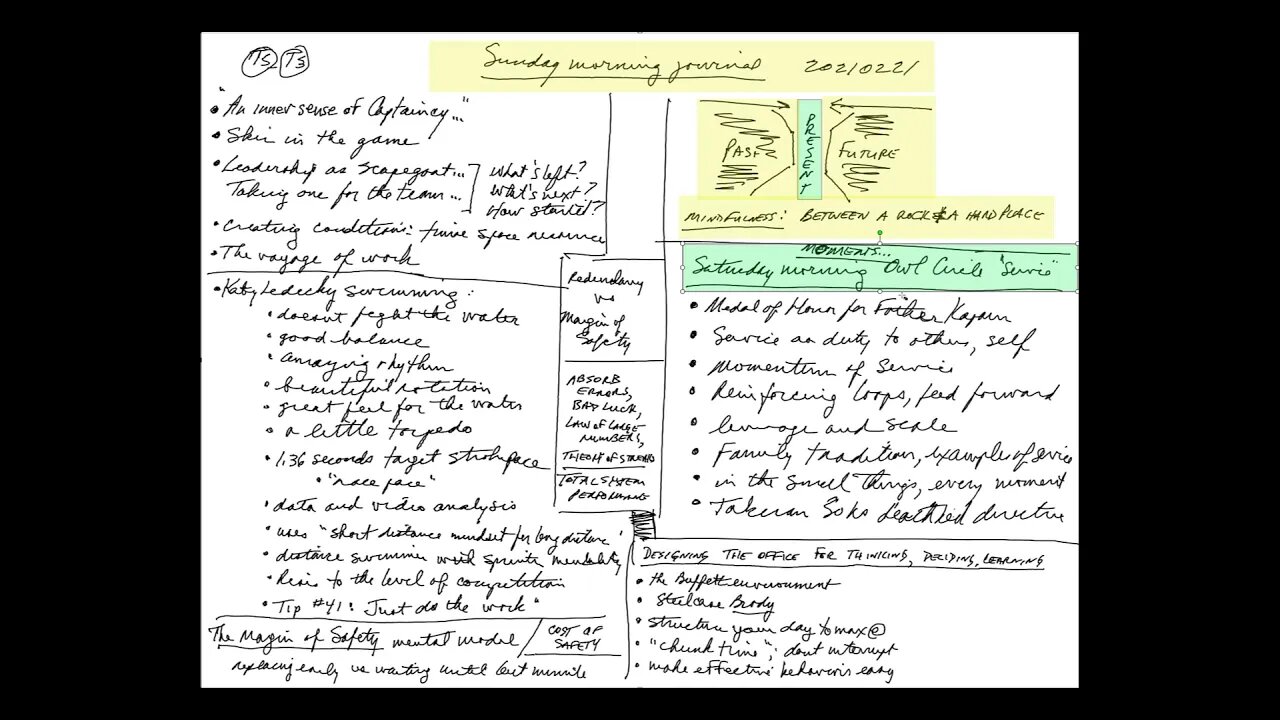 TS TS
Sunday morning journal 20210221
"An inner sense of Captaincy..."
Skin in the game
Leadership as scapegoat...
Taking one for the team...
What's left?
What's next?
How started?
Creating conditions: time space resource
The voyage of work
Katy Ledecky swimming:
doesn't fight the water
good balance
amazing rhythm
beautiful rotation
great feel for the water
a little torpedo
1.36 seconds target stroke pace
"race pace"
data and video analysis
uses "short distance mindset for long distance"
distance swimmer with sprinter mentality
Rise to the level of competition
Tip #41: Just do the work"
The Margin of Safety mental model
COST OF
SAFETY
replacing early vs waiting until last minute
Redundancy
vs
Margin of
Safety
ABSORB
ERRORS,
BAD LUCK,
LAW OF LARGE
NUMBERS,
THEORY OF
TOTAL SYSTEM
PERFORMANCE
PAST
PRESENT
FUTURE
MINDFULNESS: BETWEEN A ROCK & A HARD PLACE
MOMENTS...
Saturday morning Owl Circle "Service"
Medal of Honor for Father Kapaun
Service as duty to others, self
Momentum of Service
Reinforcing loops, feed forward
leverage and scale
Family tradition, examples of service
in the small things, every moment
directive
DESIGNING THE OFFICE FOR THINKING, DECIDING, LEARNING
the Buffett environment
Steelcase Brody
structure your day to max @
"chunk time"; don't interrupt
make effective behaviors easy